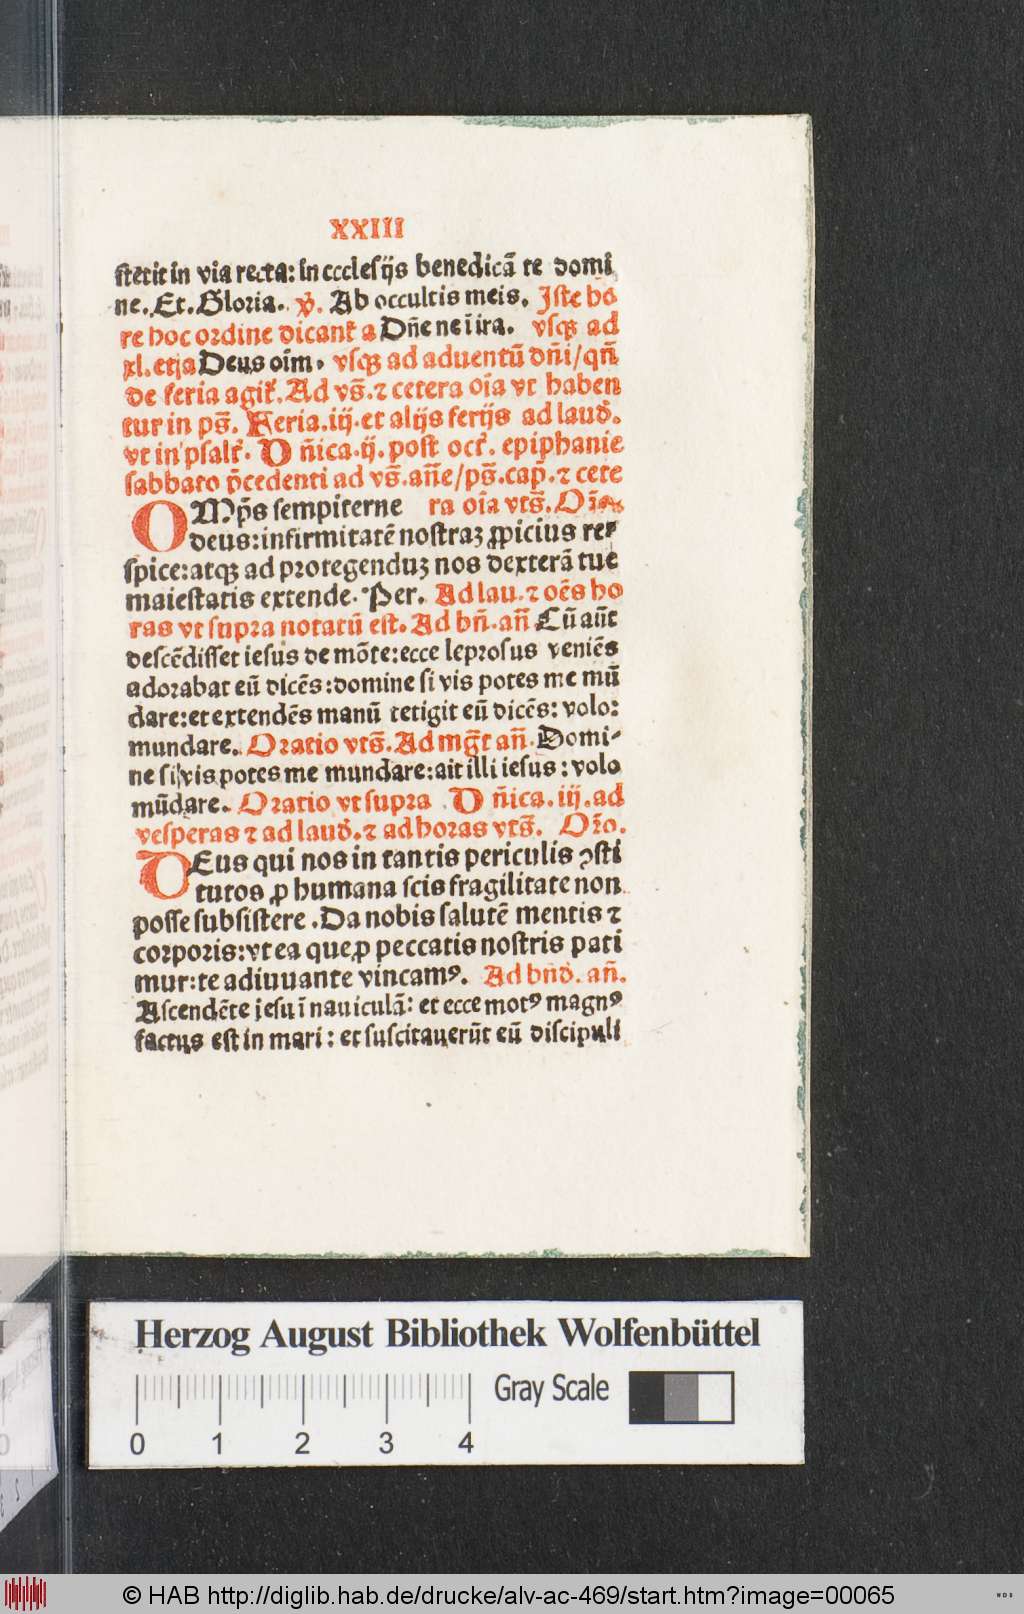 XXIII
stetit in via recta: in ecclesijs benedicã te domi
ne. Et. Gloria. ꝟ. Ab occultis meis. Iste ho
re hoc ordine dicant̃ a Dñe ne ĩ ira. vsqꝫ ad
xl. etia Deus oĩm. vsqꝫ ad aduentũ dñi/qñ
de feria agit̃. Ad vs̃. ⁊ cetera oĩa vt haben
tur in ps̃. Feria.iij.et alijs ferijs ad laud̃.
vt in psalt̃. Dñica.ij. post oct̃. epiphanie
sabbato p̃cedenti ad vs̃.añe/ps̃.cap̃.⁊ cete
OMp̃s sempiterne ra oĩa vts̃. Oño
deus:infirmitatẽ nostraꝫ ꝓpicius re-
spice:atqꝫ ad protegenduꝫ nos dexterã tue
maiestatis extende. Per. Ad lau.⁊ oẽs ho
ras vt supra notatũ est. Ad bñ.añ Cũ aũt
descẽdisset iesus de mõte:ecce leprosus veniẽs
adorabat eũ dicẽs:domine si vis potes me mũ
dare:et extendẽs manũ tetigit eũ dicẽs: volo:
mundare. Oratio vts̃. Ad mg̃t añ. Domi-
ne si vis potes me mundare:ait illi iesus: volo
mũdare. Oratio vt supra Dñica.iij.ad
vesperas ⁊ ad laud̃.⁊ ad horas vts̃. Oño.
DEus qui nos in tantis periculis ꝯsti
tutos ꝓ humana scis fragilitate non
posse subsistere. Da nobis salutẽ mentis ⁊
corporis:vt ea que ꝓ peccatis nostris pati
mur:te adiuuante vincamꝰ. Ad bñd̃. añ.
Ascendẽte iesu ĩ nauiculã: et ecce motꝰ magnꝰ
factus est in mari: et suscitauerũt eũ discipuli
Herzog August Bibliothek Wolfenbüttel
Gray Scale
0 1 2 3 4
© HAB http://diglib.hab.de/drucke/alv-ac-469/start.htm?image=00065